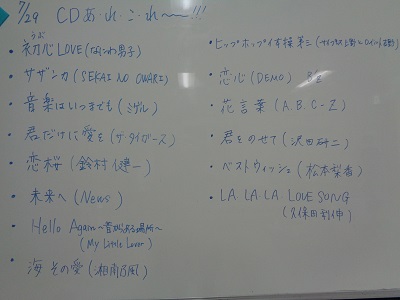 7/29 CDあ・れ・こ・れ〜!!!
うぶ
・初心LOVE(なにわ男子)
・サザンカ(SEKAI NO OWARI)
・音楽はいつまでも(ミゲル)
・君だけに愛を(ザ・タイガース)
・恋桜(鈴村健一)
・未来へ(News)
・Hello Again〜昔からある場所〜
(My Little Lover)
・海 その愛(湘南乃風)
・ヒップホップ体操第三(サイプレス上野とロベルト吉野)
・恋心(DEMO) B'z
・花言葉(A.B.C-Z)
・君をのせて(沢田研二)
・ベストウィッシュ(松本梨香)
・LA LA LA LOVE SONG
(久保田利伸)